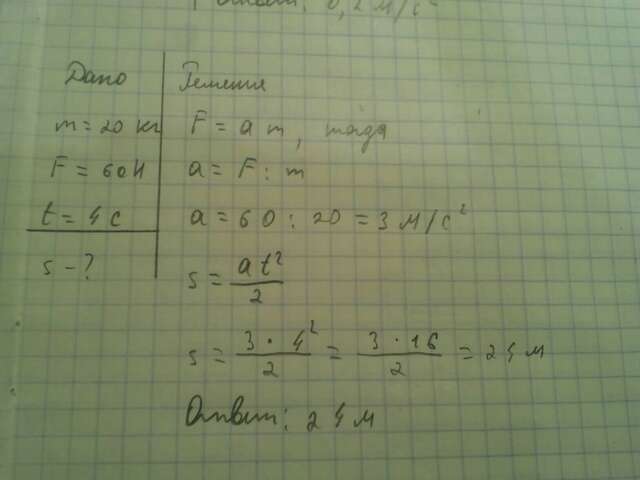 Ответ: 0,2 м/с²
Дано
m = 20 кг
F = 60 Н
t = 4 с
s - ?
Решение
F = a m, тогда
a = F : m
a = 60 : 20 = 3 м/с²
s = at²/2
s = 3 · 4²/2 = 3 · 16/2 = 24 м
Ответ: 24 м